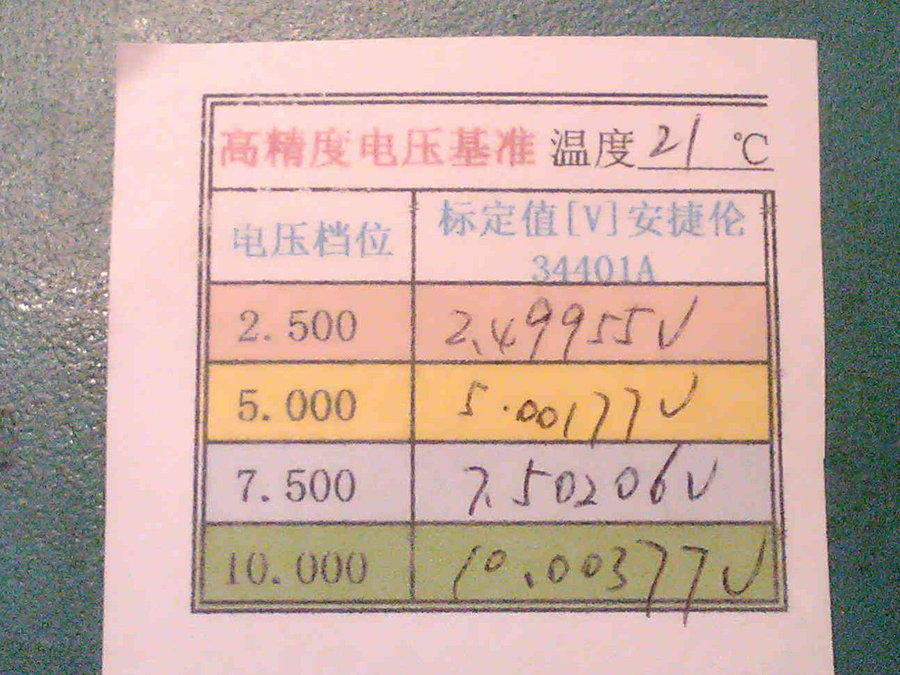 高精度电压基准 温度 21 ℃
电压档位 标定值[V]安捷伦
34401A
2.500 2.49955V
5.000 5.00177V
7.500 7.50206V
10.000 10.00377V